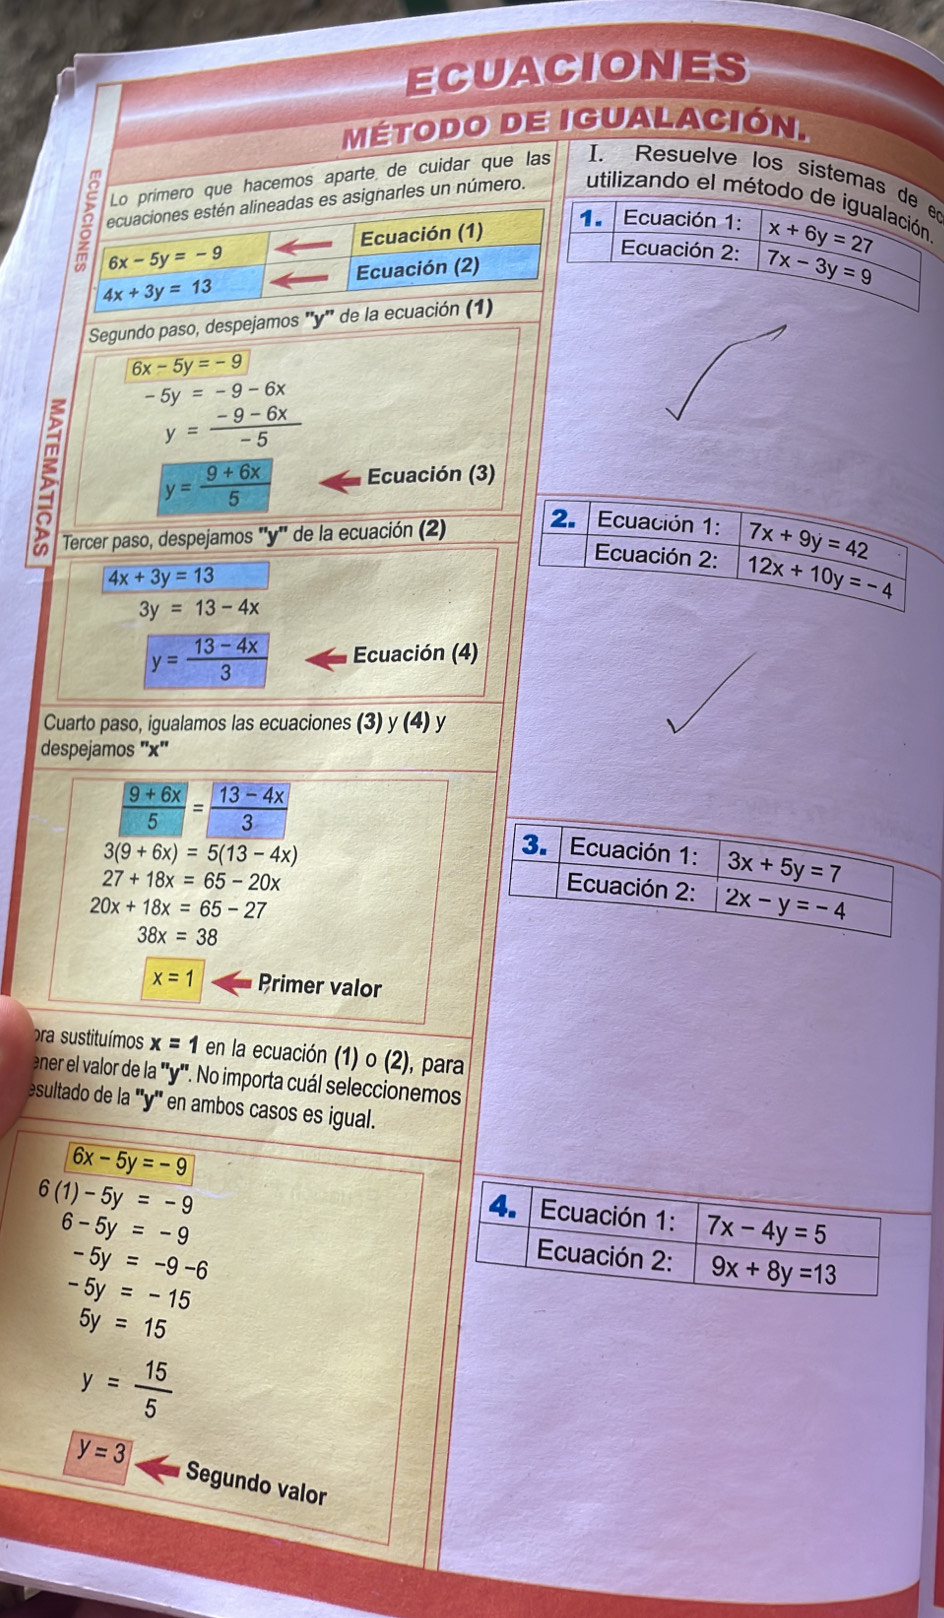 ECUACIONES
MÉTODO DE IGUALACIÓN.
ECUACIONES
MATEMÁTICAS
Lo primero que hacemos aparte de cuidar que las
ecuaciones estén alineadas es asignarles un número.
6x - 5y = - 9 Ecuación (1)
4x + 3y = 13 Ecuación (2)
Segundo paso, despejamos "y" de la ecuación (1)
6x - 5y = - 9
- 5y = - 9 - 6x
y = \frac{- 9 - 6x}{- 5}
y = \frac{9 + 6x}{5} Ecuación (3)
Tercer paso, despejamos "y" de la ecuación (2)
4x + 3y = 13
3y = 13 - 4x
y = \frac{13 - 4x}{3} Ecuación (4)
Cuarto paso, igualamos las ecuaciones (3) y (4) y
despejamos "x"
\frac{9 + 6x}{5} = \frac{13 - 4x}{3}
3(9 + 6x) = 5(13 - 4x)
27 + 18x = 65 - 20x
20x + 18x = 65 - 27
38x = 38
x = 1 Primer valor
ora sustituímos x = 1 en la ecuación (1) o (2), para
ener el valor de la "y". No importa cuál seleccionemos
esultado de la "y" en ambos casos es igual.
6x - 5y = - 9
6 (1) - 5y = - 9
6 - 5y = - 9
- 5y = -9 -6
- 5y = - 15
5y = 15
y = \frac{15}{5}
y = 3 Segundo valor
I. Resuelve los sistemas de ec
utilizando el método de igualación.
1. Ecuación 1: x + 6y = 27
Ecuación 2: 7x - 3y = 9
2. Ecuación 1: 7x + 9y = 42
Ecuación 2: 12x + 10y = - 4
3. Ecuación 1: 3x + 5y = 7
Ecuación 2: 2x - y = - 4
4. Ecuación 1: 7x - 4y = 5
Ecuación 2: 9x + 8y =13